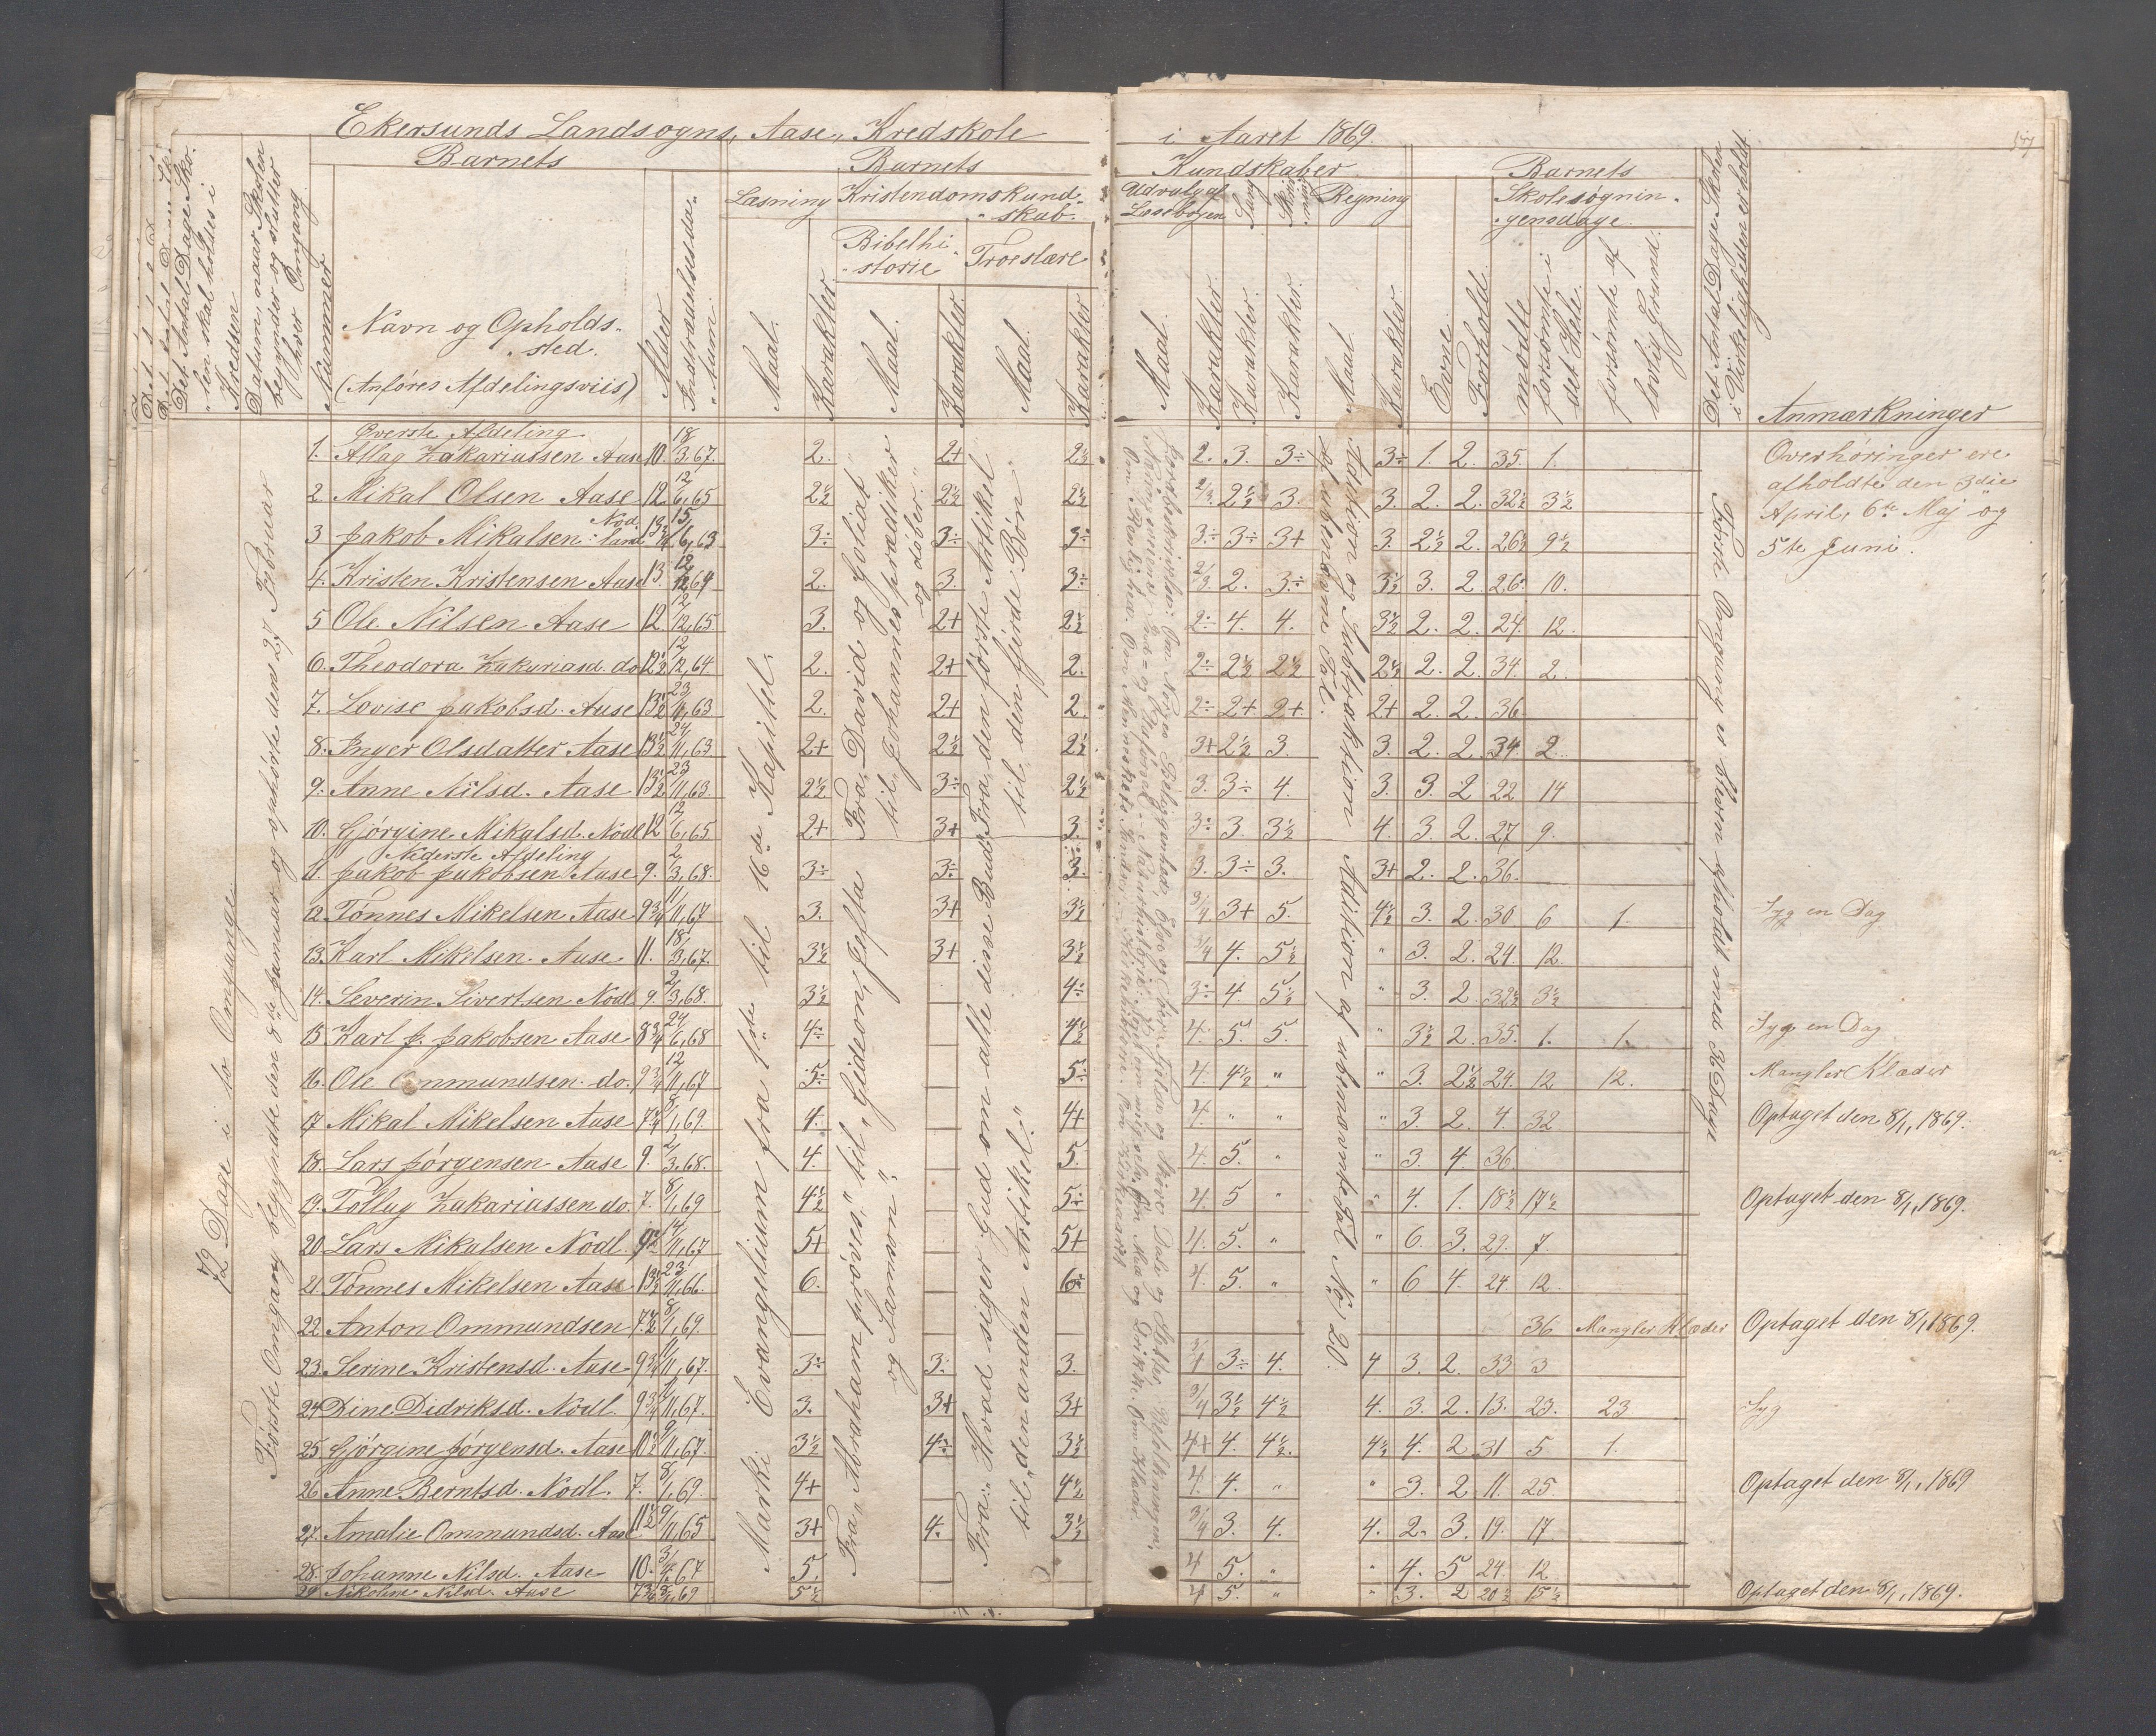 Ekersunds Landsogns, Aase, Kredskole i Aaret 1869.
Det Antal Dage Skolen skal holdes i Kredsen
Datum, naar Skolen begynder og slutter hver Omgang
Nummer
Barnets
Navn og Opholdssted.
(Anføres Afdelingsviis)
Alder
Indtrædelsesdatum
Barnets Kundskaber
Læsning
Kristendomskundskab.
Bibelhistorie
Troeslære
Udvalg af Læsebogen
Sang
Skrivning
Regning
Maal.
Karakter.
Maal.
Karakter.
Maal.
Karakter
Maal.
Karakter.
Karakter.
Karakter.
Maal
Karakter
Barnets
Evne.
Forhold.
Skolesøgningensdage.
mødte
forsømte i det Hele.
forsømte af lovlig Grund.
Det Antal Dage Skolen i Virkeligheden er holdt
Anmærkninger
72 Dage i to Omgange.
Første Omgang begyndte den 8de Januar og ophørte den 27 Februar
Marki Evangelium fra 1ste til 16de Kapitel.
Fra "David og Goliat" til "Johannes prædiker og døber."
Fra "Abraham prøves," til "Gideon, Jefta og Samson".
Fra den første Artikel til den fjerde Bøn.
Fra: Hvad siger Gud om alle disse Bud til "den anden Artikel".
Addition og Subtraktion af ubenævnte Tal.
Addition af ubenævnte Tal No. 20.
Første Omgang er Skolen afholdt med 36 Dage
Øverste Afdeling
1. Atlag Zakariassen Aase 10. 18/3,67. 2. 2+ 2½ 2. 3. 3÷ 3÷ 1. 2. 35. 1.
2 Mikal Olsen Aase 12 12/6,65 2½ 2½ 2½ 2/3. 2½ 3. 3. 2. 2. 32½ 3½
3 Jakob Mikalsen Nodland 13¾ 15/6,63 3÷ 3÷ 3÷ 3÷ 3÷ 3+ 3. 2½ 2. 26½ 9½
4. Kristen Kristensen Aase 13. 12/12,64 2. 3. 3÷ 2/3 2. 3÷ 3½ 3. 2 26. 10.
5 Ole Nilsen Aase 12 12/12,65 3. 2+ 2½ 2÷ 4. 4. 3½ 2. 2. 24. 12.
6. Theodora Zakariasd. do. 12½ 12/12,64. 2. 2+ 2. 2÷ 2½ 2½ 2½ 2. 2. 34. 2.
7. Lovise Jakobsd. Aase 13½ 23/11,63 2. 2+ 2. 2÷ 2+ 2+ 2+ 2. 2. 36
8. Inger Olsdatter Aase 13½ 24/11,63 2+ 2½ 2½ 3+ 2½ 3. 3. 2. 2. 34. 2.
9. Anne Nilsd. Aase 13½ 23/11,63. 2½ 3÷ 2½ 3. 3÷ 4. 3. 3. 2 22 14
10. Gjørgine Mikalsd. Nodl 12 12/6,65 2+ 3+ 3. 3÷ 3. 3½ 4. 3. 2. 27 9.
Nederste Afdeling
11. Jakob Jakobsen Aase 9. 2/3,68. 3÷ 3÷ 3. 3. 3÷ 3. 3+ 2. 2. 36.
12. Tønnes Mikelsen Aase 9¾ 11/11,67 3. 3+ 3½ 3/4 3+ 5. 4½ 3. 2. 30 6 1. Syg en Dag
13. Karl Mikelsen Aase 11. 18/3,67. 3½ 3+ 3½ 3/4 4. 5½ " 3. 2. 24. 12.
14. Severin Sivertsen Nodl. 9. 2/3,68. 3½ 4÷ 3÷ 4. 5½ " 3. 2. 32½ 3½
15 Karl J. Jakobsen Aase 8¾ 24/6,68 4÷ 4½ 4. 5. 5. " 3½ 2. 35. 1. 1. Syg en Dag
16. Ole Ommundsen do. 9¾ 12/11,67 5÷ 5÷ 4. 4½ " " 3. 2½ 24. 12 12. Mangler Klæder
17 Mikal Mikelsen Aase 7¾ 8/1,69. 4. 4+ 4. " " " 3. 2. 4. 32 Optaget den 8/1, 1869.
18. Lars Jørgensen Aase 9. 2/3,68. 4. 5. 4. 5. " " 3. 4. 36.
19. Tollag Zakariassen do. 7. 8/1,69 4½ 5÷ 4. 5 " " 4. 1. 18½ 17½ Optaget den 8/1, 1869.
20. Lars Mikalsen Nodl. 14/11,67 5+ 5+ 4. 5. " " 6. 3. 29. 7.
21. Tønnes Mikelsen Aase 13½ 23/11,66. 6. 6÷ 4. 5. " " 6 4. 24 12.
22 Anton Ommundsen 7½ 8/1,69. 36 Mangler Klæder Optaget den 8/1 1869.
23. Serine Kristensd. Aase 9¾ 11/11,67. 3÷ 3. 3. 3/4 3÷ 4. 4 3. 2. 33 3
24 Dine Didriksd. Nodl 9¾ 11,67. 3. 3+ 3+ 3/4 3½ 4½ 4. 3. 2. 13. 23. 23 Syg
25. Gjørgine Jørgensd. Aase 10½ 9/11,67. 3½ 4÷ 3½ 4+ 4. 4½. 4½ 4. 2 31 5 1.
26. Anne Berntsd. Nodl. 7. 8/1,69. 4+ 4½ 4. 4. " " 3. 2 11. 25. Optaget den 8/1, 1869
27. Amalie Ommundsd. Aase 11½ 9/11,65 3+ 4. 3½ 3/4 3. 4. 4. 2. 3. 19. 17
28. Johanne Nilsd. Aase 10. 5. 4 5. " " 4. 5 24. 12.
29 Nikoline Nilsd. Aase 7¾ 8/1,69 5½ 4 5. " " 3. 2 20½ 15½ Optaget den 8/1, 1869.
Overhøringer ere
afholdte den 3die
April, 6te Maj og
5te Juni.